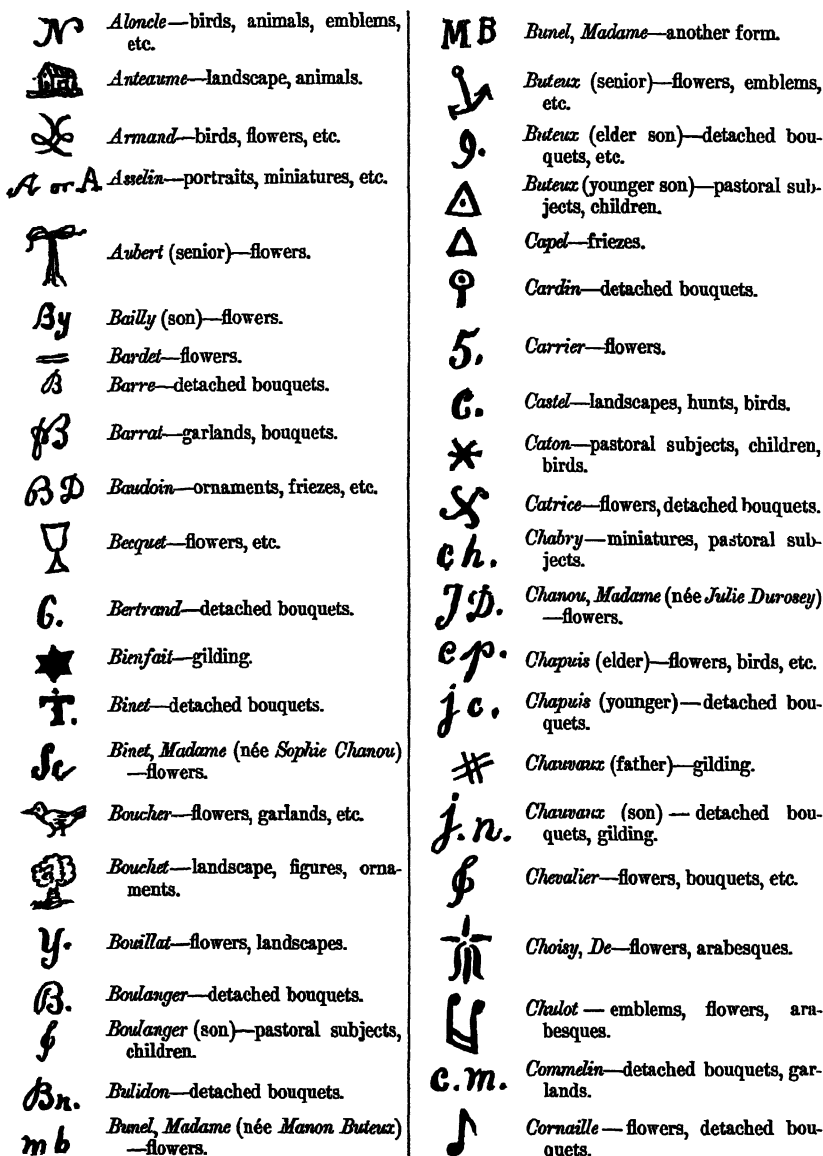 N Aloncle—birds, animals, emblems,
etc.
Anteaume—landscape, animals.
Armand—birds, flowers, etc.
A or A Asselin—portraits, miniatures, etc.
Aubert (senior)—flowers.
By Bailly (son)—flowers.
Bardet—flowers.
B Barre—detached bouquets.
Barrat—garlands, bouquets.
BD Baudoin—ornaments, friezes, etc.
Becquet—flowers, etc.
6. Bertrand—detached bouquets.
Bienfait—gilding.
T. Binet—detached bouquets.
Sc Binet, Madame (née Sophie Chanou)
—flowers.
Boucher—flowers, garlands, etc.
Bouchet—landscape, figures, orna-
ments.
Y. Bouillat—flowers, landscapes.
B. Boulanger—detached bouquets.
Boulanger (son)—pastoral subjects,
children.
Bn. Bulidon—detached bouquets.
mb Bunel, Madame (née Manon Buteux)
—flowers.
MB Bunel, Madame—another form.
Buteux (senior)—flowers, emblems,
etc.
9. Buteux (elder son)—detached bou-
quets, etc.
Buteux (younger son)—pastoral sub-
jects, children.
Capel—friezes.
Cardin—detached bouquets.
5. Carrier—flowers.
C. Castel—landscapes, hunts, birds.
Caton—pastoral subjects, children,
birds.
Catrice—flowers, detached bouquets.
ch. Chabry—miniatures, pastoral sub-
jects.
JD. Chanou, Madame (née Julie Durosey)
—flowers.
cp. Chapuis (elder)—flowers, birds, etc.
jc. Chapuis (younger)—detached bou-
quets.
Chauvaux (father)—gilding.
j.n. Chauvaux (son)—detached bou-
quets, gilding.
Chevalier—flowers, bouquets, etc.
Choisy, De—flowers, arabesques.
Chulot—emblems, flowers, ara-
besques.
c.m. Commelin—detached bouquets, gar-
lands.
Cornaille—flowers, detached bou-
quets.